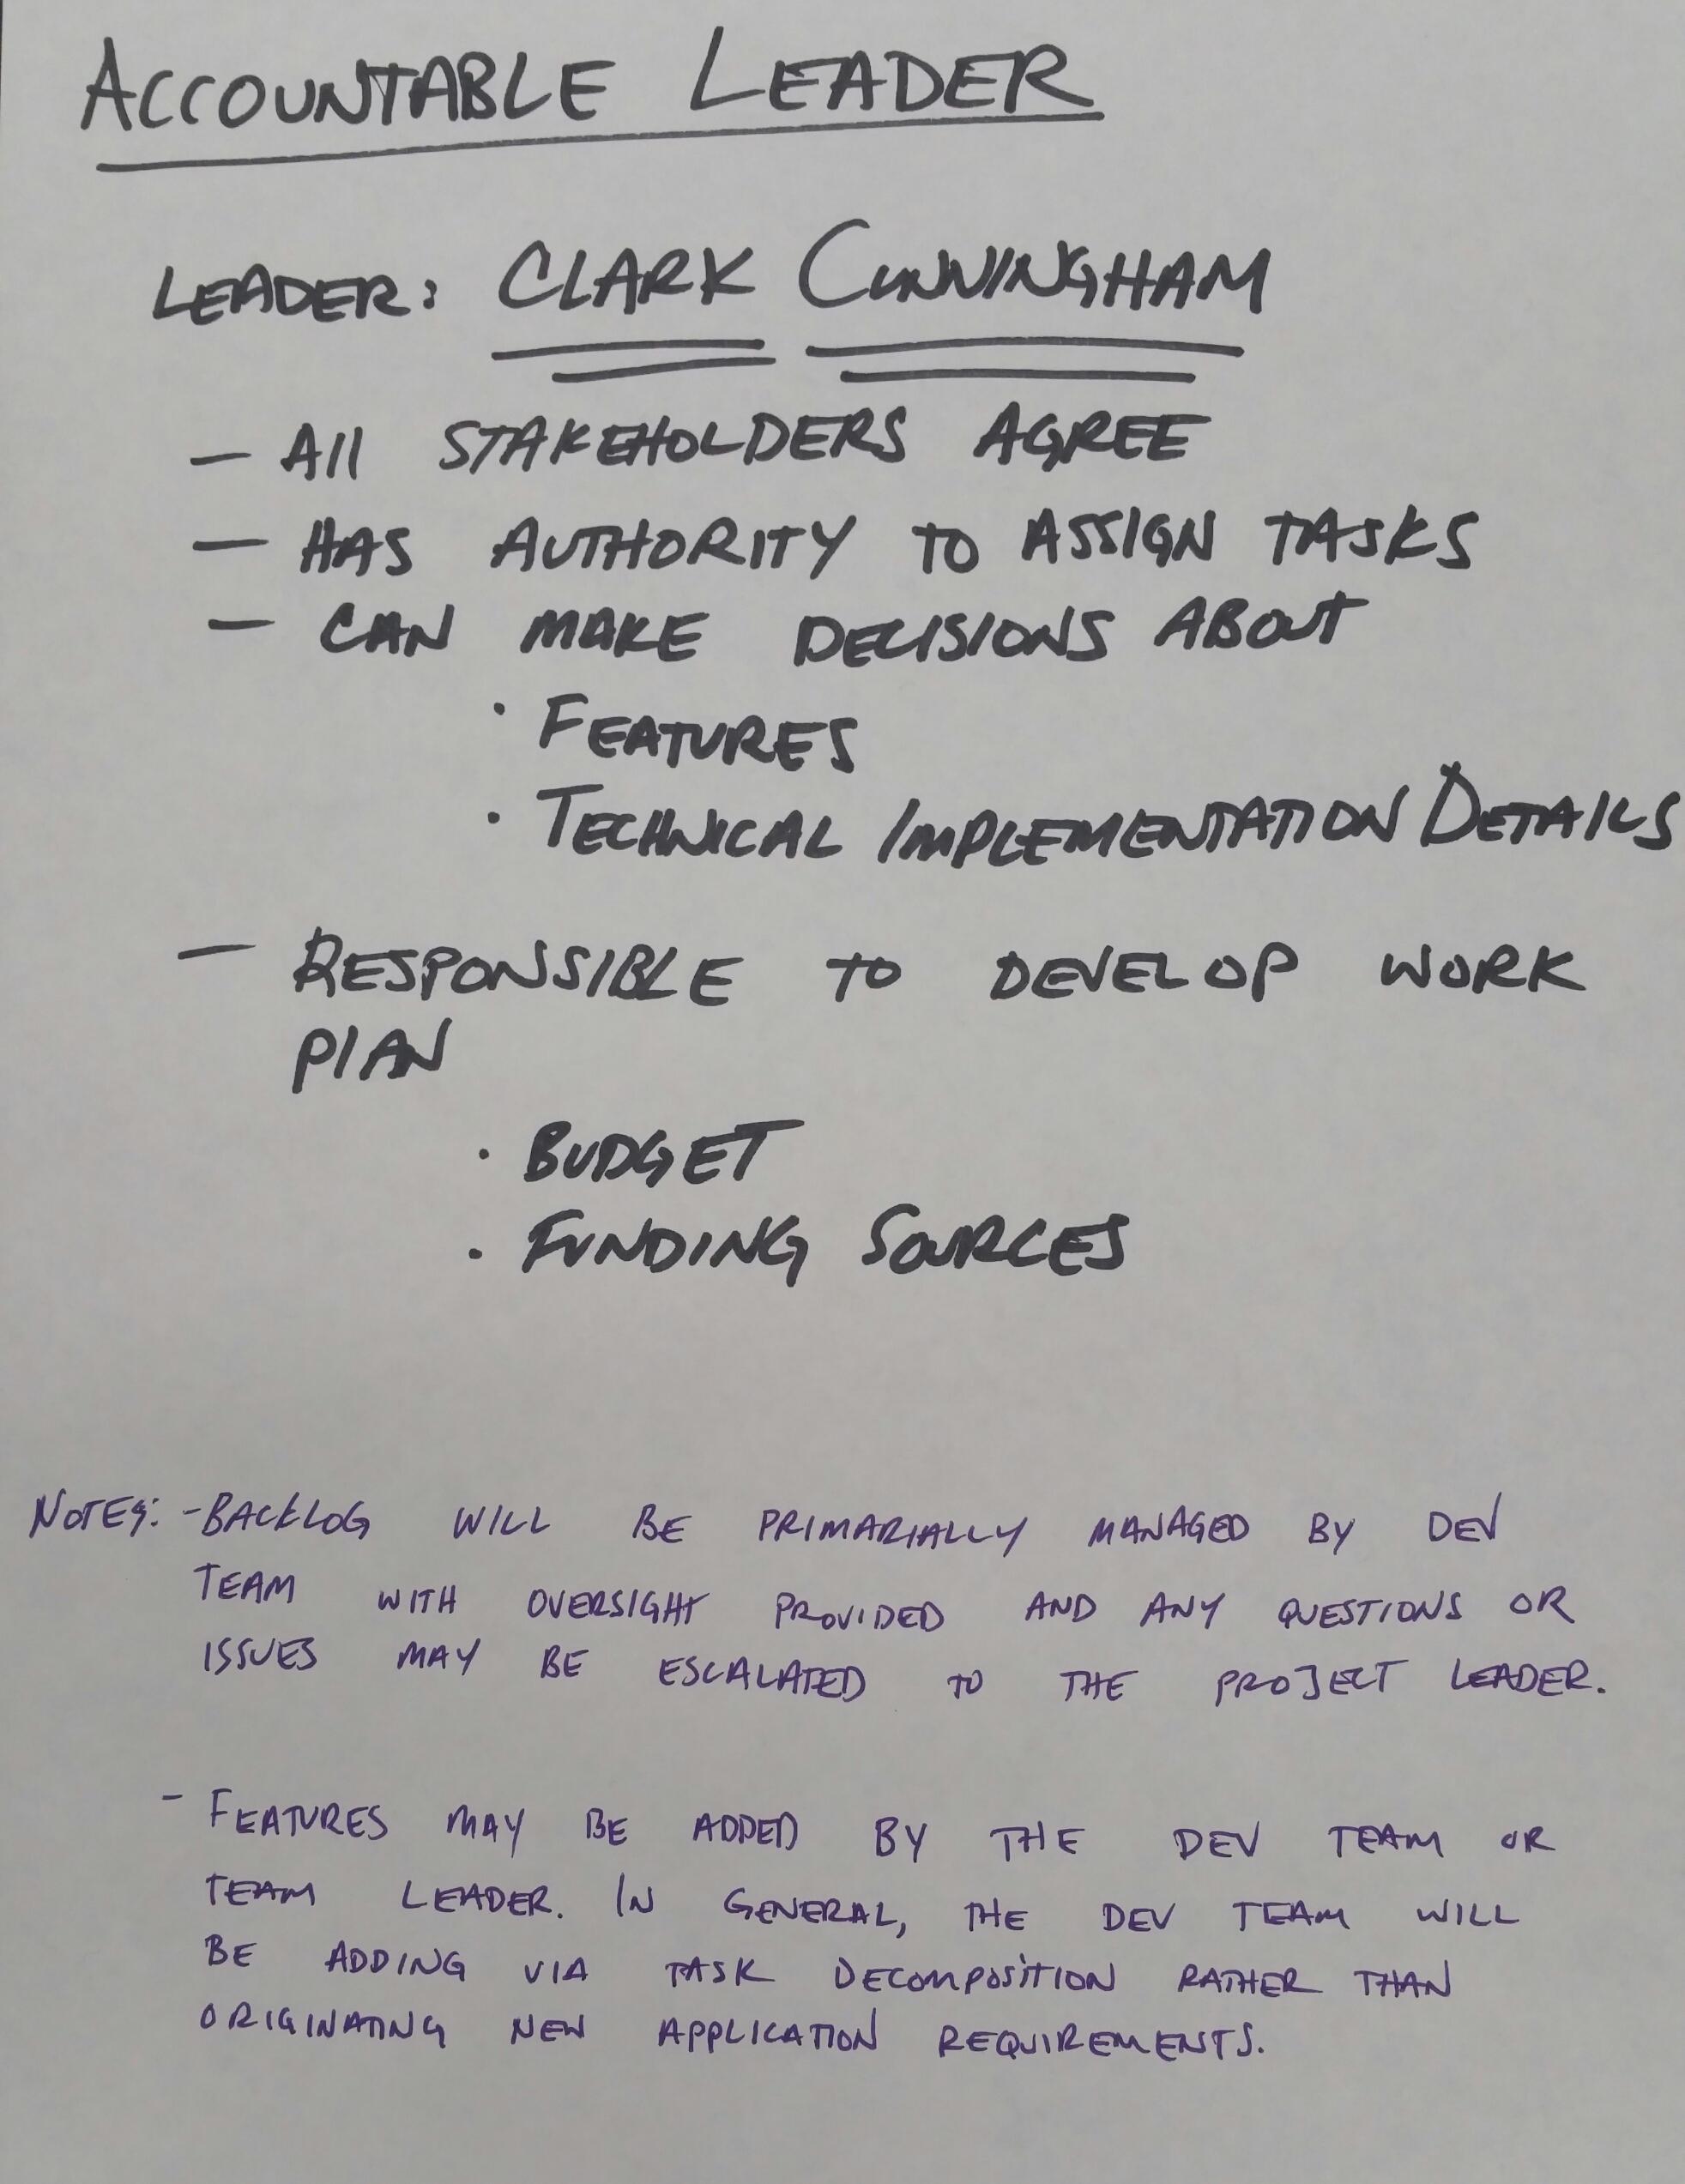 ACCOUNTABLE LEADER
LEADER: CLARK CUNNINGHAM
— All STAKEHOLDERS AGREE
— HAS AUTHORITY TO ASSIGN TASKS
— CAN MAKE DECISIONS ABOUT
· FEATURES
· TECHNICAL IMPLEMENTATION DETAILS
— RESPONSIBLE TO DEVELOP WORK
PlAN
· BUDGET
· FUNDING SOURCES
NOTES: - BACKLOG WILL BE PRIMARIALLY MANAGED BY DEV
TEAM WITH OVERSIGHT PROVIDED AND ANY QUESTIONS OR
ISSUES MAY BE ESCALATED TO THE PROJECT LEADER.
- FEATURES MAY BE ADDED BY THE DEV TEAM OR
TEAM LEADER. IN GENERAL, THE DEV TEAM WILL
BE ADDING VIA TASK DECOMPOSITION RATHER THAN
ORIGINATING NEW APPLICATION REQUIREMENTS.